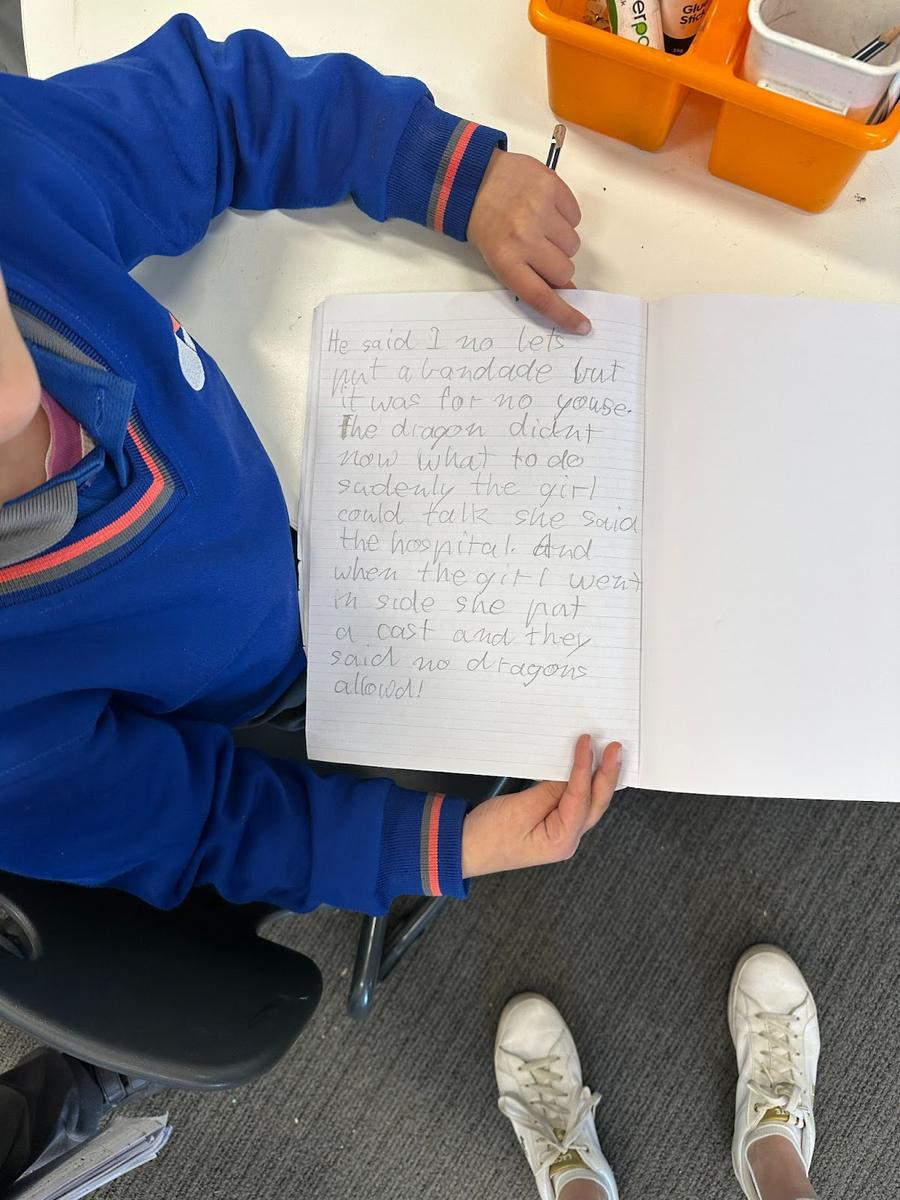 Glue
Stick
He said I no lets
put a bandade but
it was for no youse.
The dragon didnt
now what to do
sudenly the girl
could talk she said
the hospital. And
when the girl went
in side she put
a cast and they
said no dragons
allowd!